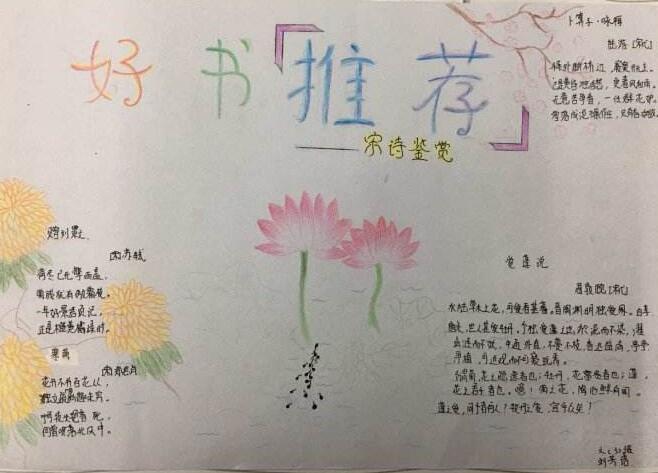 好书「推荐」
——宋诗鉴赏
卜算子·咏梅
陆游〔宋〕
驿外断桥边,寂寞
已是黄昏独自愁,更着风和雨。
无意苦争春,一任群花妒。
零落成泥碾作尘,只有香如故。
赠刘景
苏轼
荷尽已无擎雨盖,
菊残犹有傲霜
一年好景君须记,
正是橙黄橘绿时。
寒菊
郑思肖
花开不并百花丛,
独立疏篱趣未穷。
宁可枝头抱香死,
何曾吹落北风中。
爱莲说
周敦颐〔宋〕
水陆草木之花,可爱者甚蕃。晋陶渊明独爱菊。自李
唐来,世人甚爱牡丹。予独爱莲之出淤泥而不染,濯
清涟而不妖,中通外直,不蔓不枝,香远益清,亭亭
净植,可远观而不可亵玩焉。
花之隐逸者也;牡丹,花之富贵者也;莲,
花之君子者也。噫!菊之爱,陶后鲜有闻。
莲之爱,同予者何人?牡丹之爱,宜乎众矣!